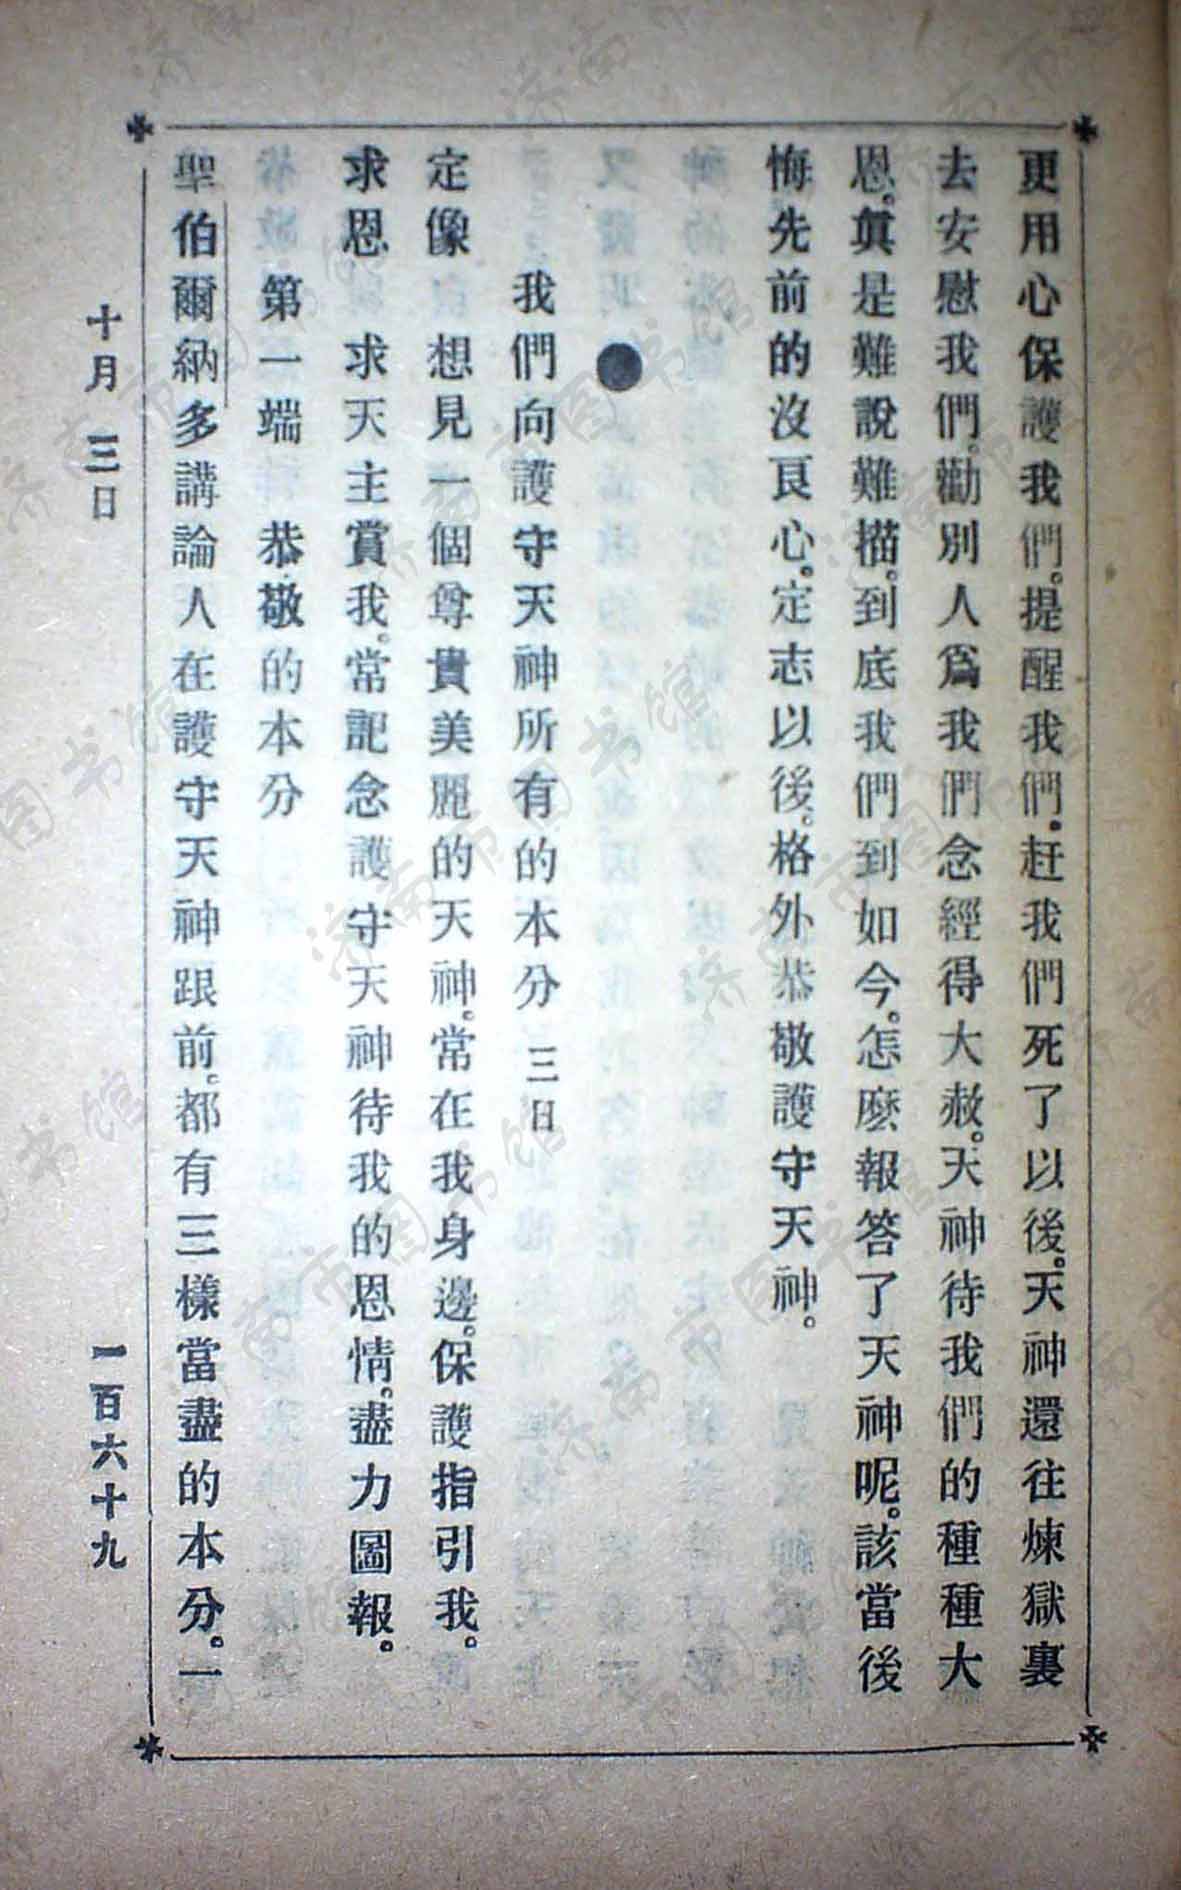 更用心保護我們。提醒我們。赶我們死了以後。天神還往煉獄裏
去安慰我們。勸別人爲我們念經得大赦。天神待我們的種種大
恩。眞是難說難描。到底我們到如今。怎麽報答了天神呢。該當後
悔先前的沒良心。定志以後。格外恭敬護守天神。
●
我們向護守天神所有的本分 三日
定像 想見一個尊貴美麗的天神。常在我身邊。保護指引我。
求恩 求天主賞我。常記念護守天神待我的恩情。盡力圖報。
第一端 恭敬的本分
聖伯爾納多講論人在護守天神跟前。都有三樣當盡的本分。一
十月 三日
一百六十九
济南市图书馆